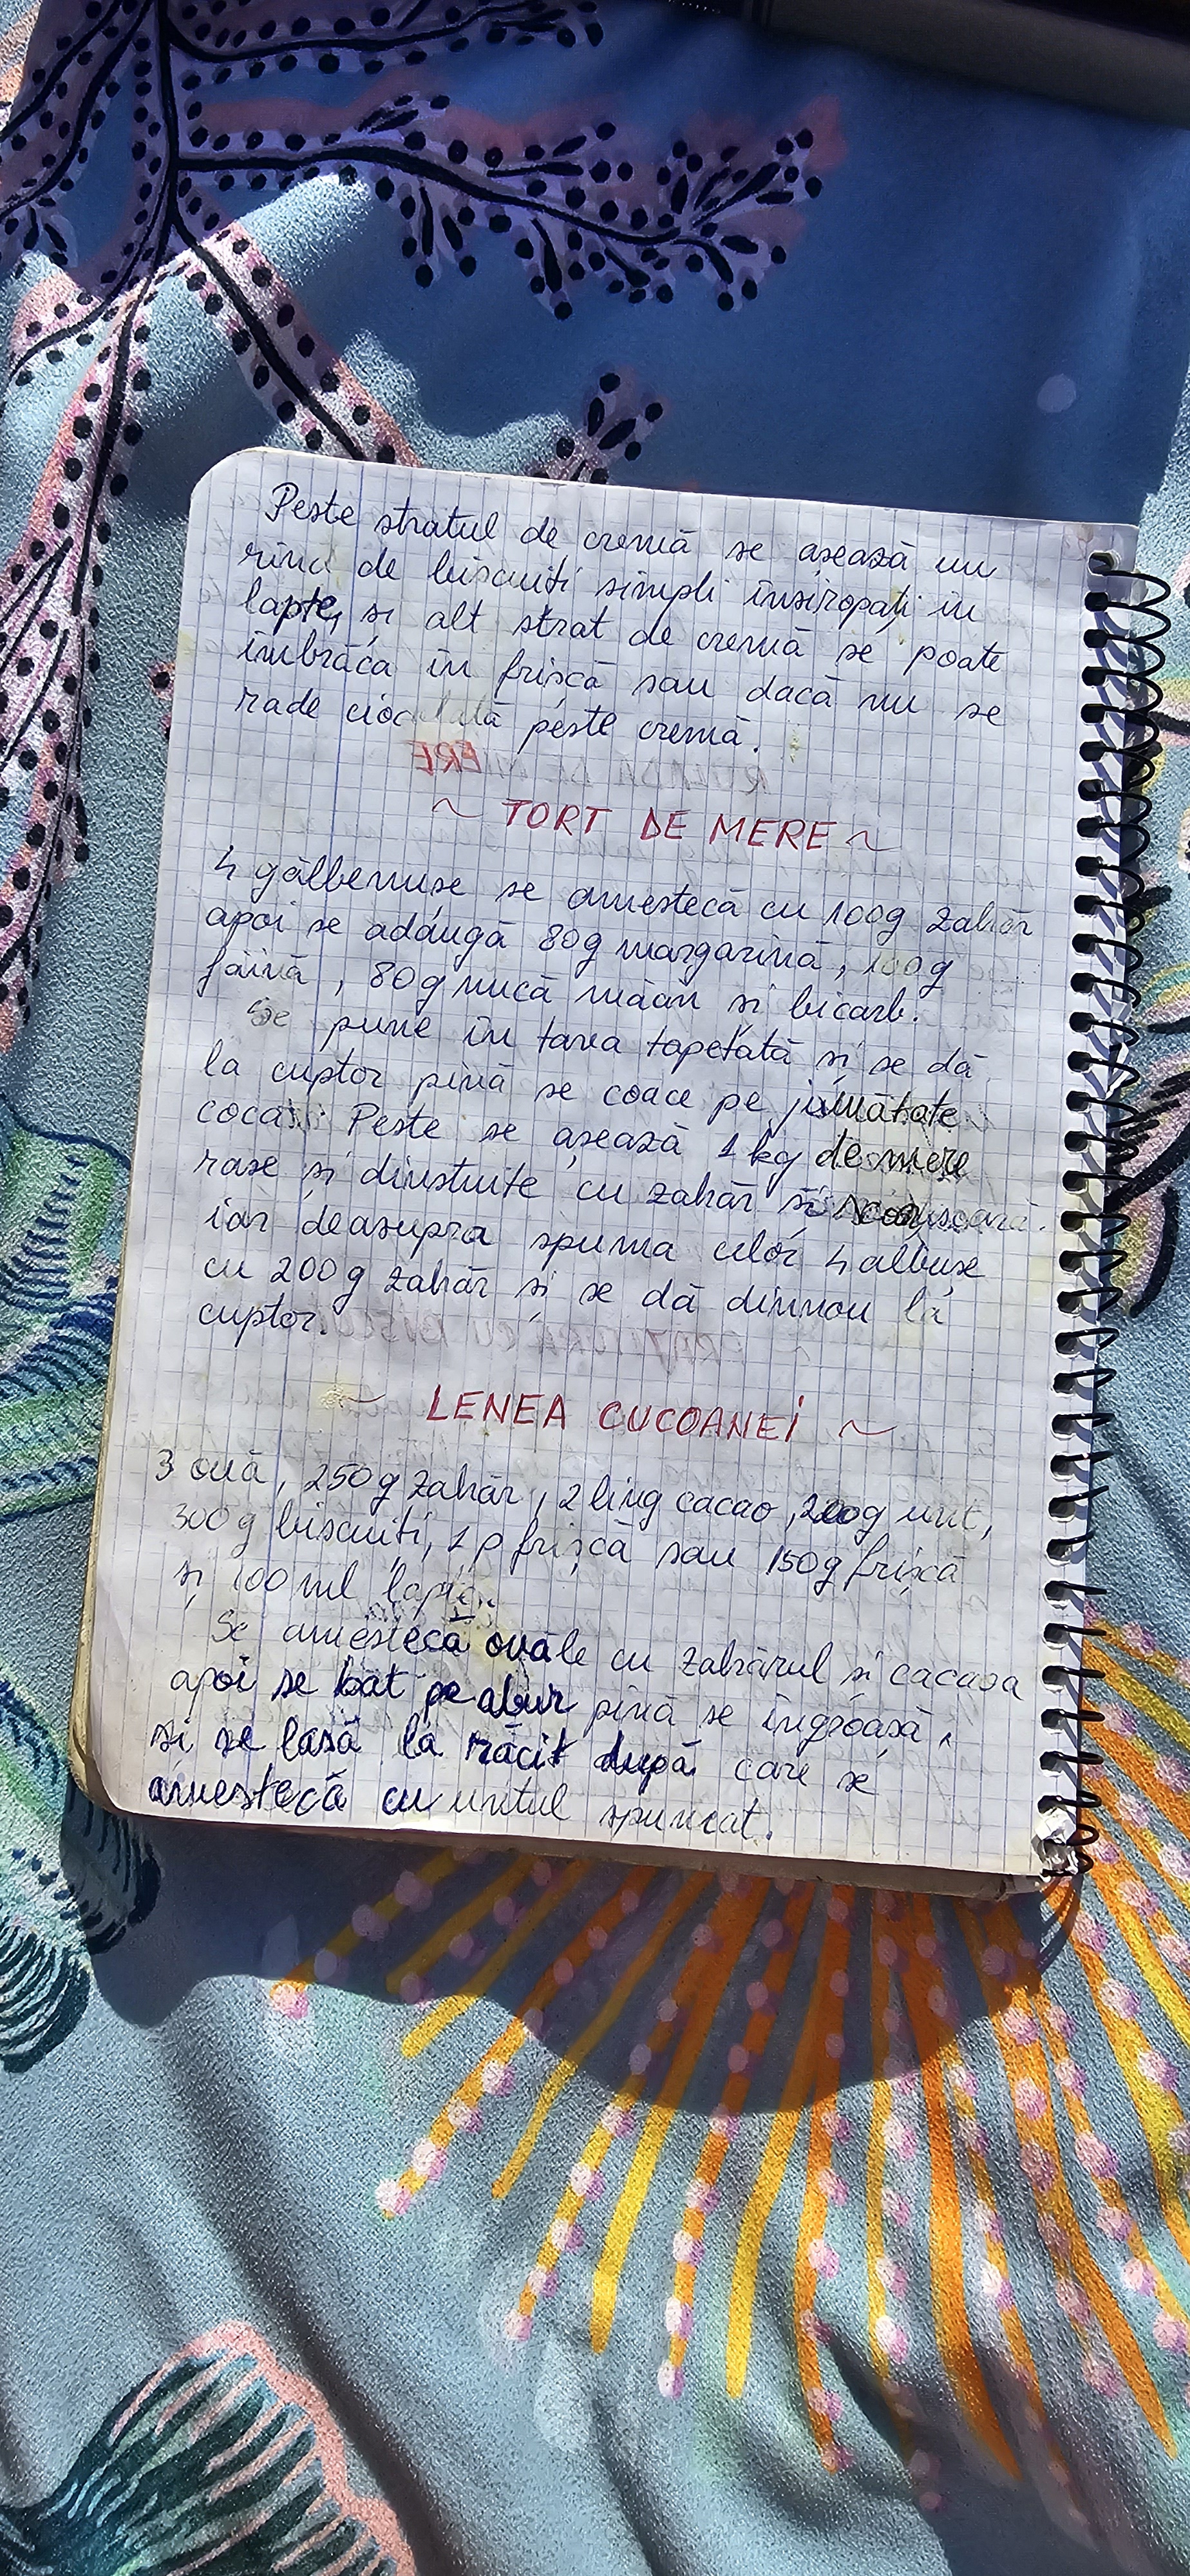 Peste stratul de cremă se așează un
rînd de biscuiți simpli însiropați în
lapte, și alt strat de cremă se poate
îmbrăca în frișcă sau dacă nu se
rade ciocolată peste cremă.
~ TORT DE MERE ~
4 gălbenușe se amestecă cu 100g zahăr
apoi se adaugă 80g margarină, 100g
făină, 80g nucă măcin și bicarb.
Se pune în tava tapetată și se dă
la cuptor pînă se coace pe jumătate
coca. Peste se așează 1 kg de mere
rase și dinstuite cu zahăr și scorțișoară.
iar deasupra spuma celor 4 albușe
cu 200g zahăr și se dă dinnou la
cuptor.
~ LENEA CUCOANEI ~
3 ouă, 250g zahăr, 2 ling cacao, 200g unt,
300g biscuiți, 1 p frișcă sau 150g frișcă
și 100 ml lapte.
Se amestecă ouăle cu zahărul și cacaoa
apoi se bat pe abur pînă se îngroașă,
și se lasă la răcit după care se
amestecă cu untul spumat.